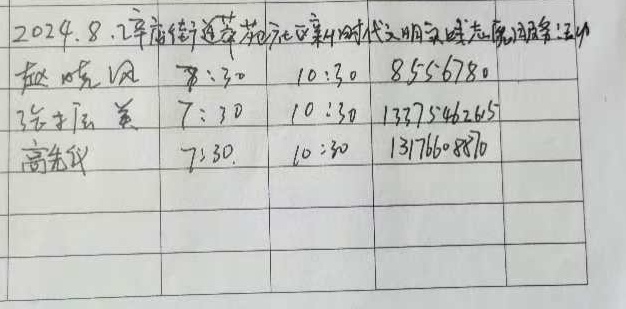 2024.8.2辛店街道苹苑社区新时代文明实践志愿服务活动
赵晓风 7:30 10:30 8556780
张 美 7:30 10:30 13375462615
高先 7:30. 10:30 13176608870